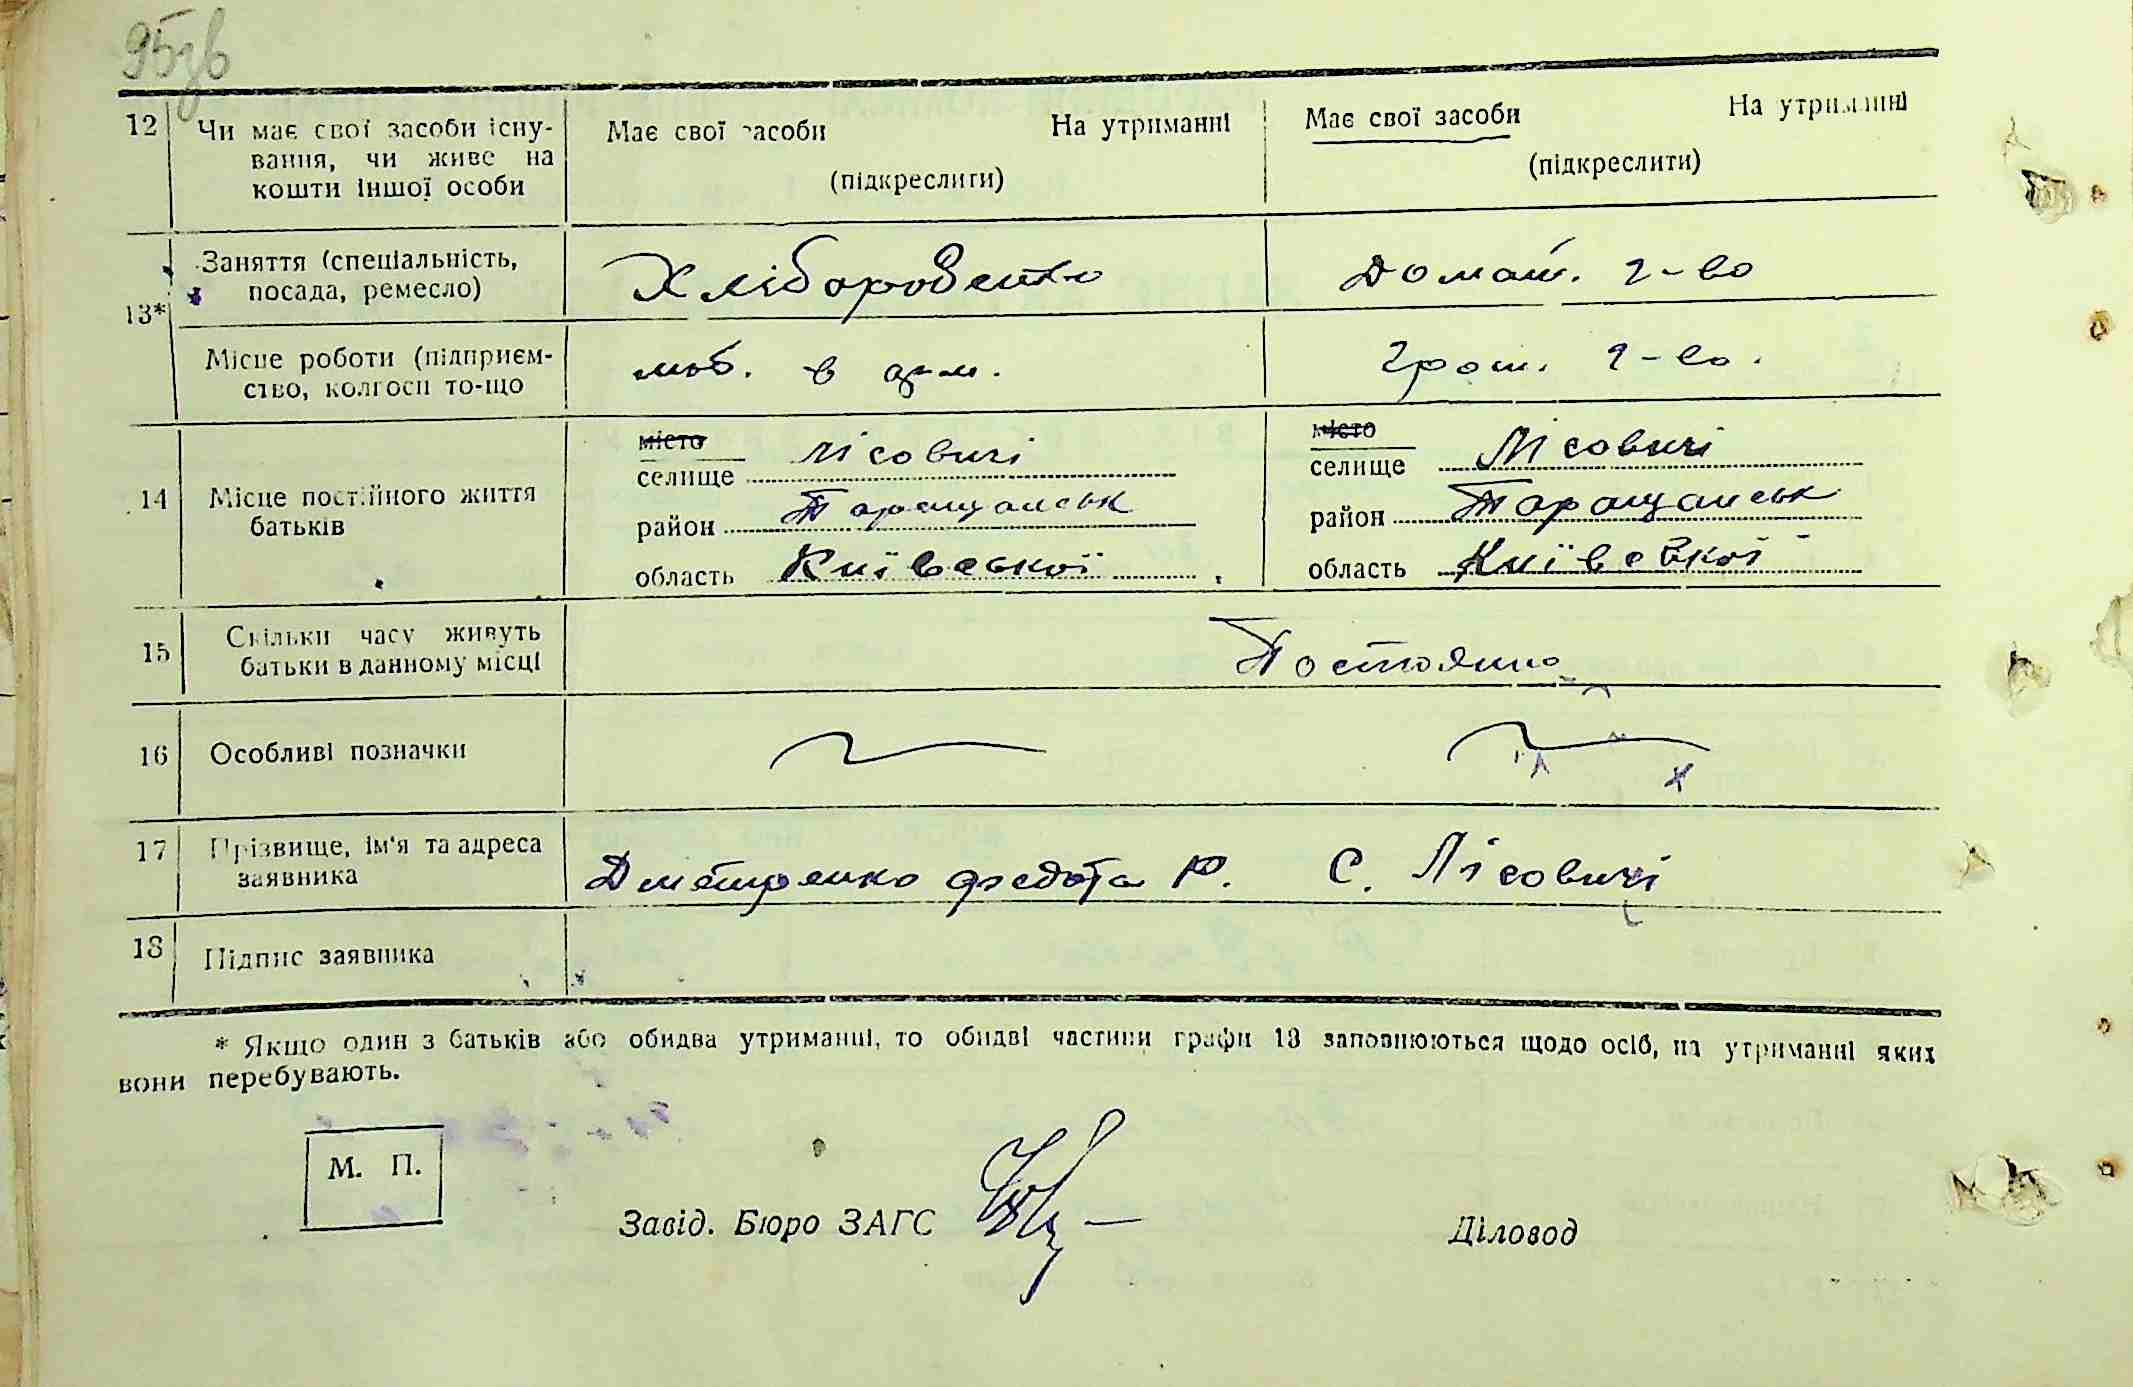 95зв
12 Чи має свої засоби існу-
вання, чи живе на
кошти іншої особи
Має свої засоби На утриманні
(підкреслити)
Має свої засоби На утриманні
(підкреслити)
13* Заняття (спеціальність,
посада, ремесло)
Хліборобство
Домаш. г-во
Місце роботи (підприєм-
ство, колгосп то-що
моб. в арм.
Гром. г-во.
14 Місце постійного життя
батьків
місто
селище Лісовичі
район Таращанськ
область Київської
місто
селище Лісовичі
район Таращанськ
область Київської
15 Скільки часу живуть
батьки в данному місці
Постоянно
16 Особливі позначки
17 Прізвище, ім'я та адреса
заявника
Дмитренко Федота Ю. С. Лісовичі
18 Підпис заявника
* Якщо один з батьків або обидва утриманні, то обидві частини графи 13 заповнюються щодо осіб, на утриманні яких
вони перебувають.
М. П.
Завід. Бюро ЗАГС
Діловод